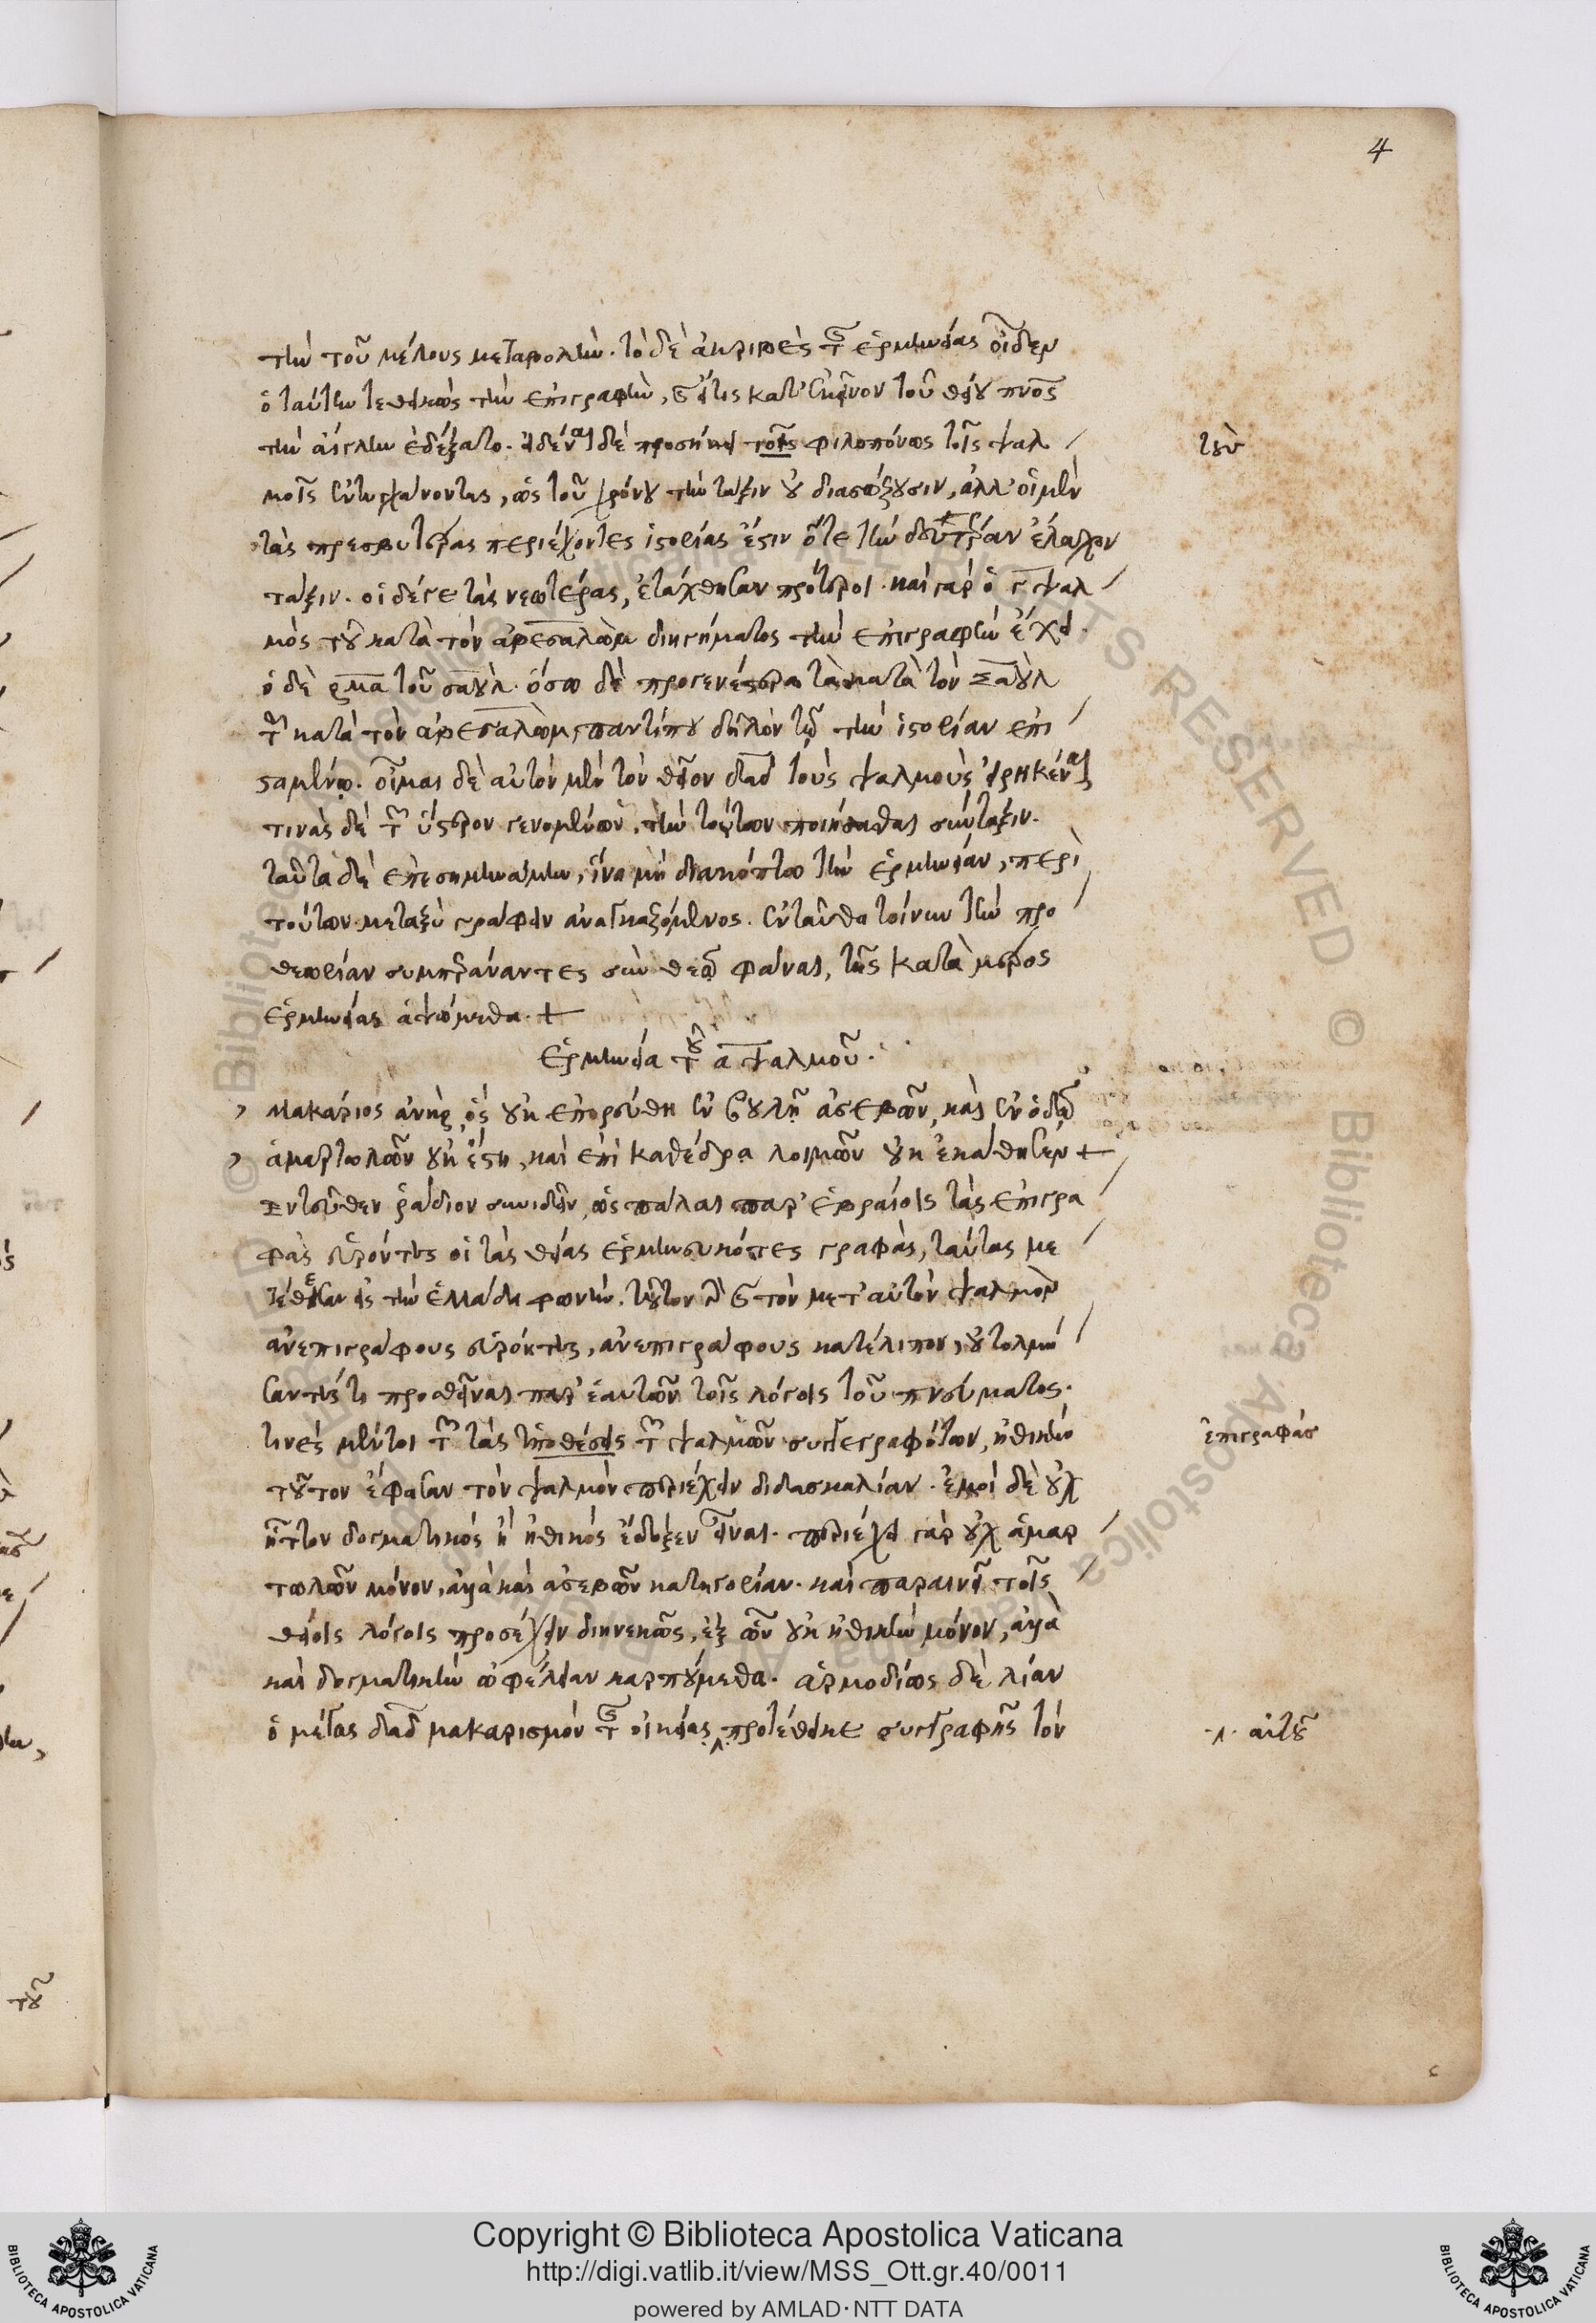 4
τὴν τοῦ μέλους μεταβολήν. τὸ δὲ ἀκριβὲς τῆς ἑρμηνείας οἶδεν
ὁ ταύτην τεθεικὼς τὴν ἐπιγραφὴν, καὶ εἴτις κατ' ἐκεῖνον τοῦ θείου πνος
τὴν αἴγλην ἐδέξατο. εἰδέναι δὲ προσήκει τοῖς φιλοπόνως τοῖς ψαλ
τοὺς
μοῖς ἐντυγχάνοντας, ὡς τοῦ χρόνου τὴν τάξιν οὐ διασώζουσιν, ἀλλ' οἱ μὲν
τὰς πρεσβυτέρας περιέχοντες ἱστορίας ἔστιν ὅτε τὴν δευτέραν ἔλαχον
τάξιν. οἱ δέ γε τὰς νεωτέρας, ἐτάχθησαν πρότεροι. καὶ γὰρ ὁ γ ψαλ
μὸς τοῦ κατὰ τὸν ἀβεσαλὼμ διηγήματος τὴν ἐπιγραφὴν ἔχει.
ὁ δὲ ρμα τοῦ σαούλ. ὅσω δὲ προγενέστερα τὰ κατὰ τὸν Σαοὺλ
τῶν κατὰ τὸν ἀβεσαλὼμ, παντίπου δῆλον τῶ τὴν ἱστορίαν ἐπι
σταμένω. οἶμαι δὲ αὐτὸν μὲν τὸν θεῖον δαδ τοὺς ψαλμοὺς εἰρηκέναι
τινὰς δὲ τῶν ὕστερον γενομένων, τὴν τούτων ποιήσασθαι σύνταξιν.
ταῦτα δὲ ἐπεσημηνάμην, ἵνα μὴ διακόπτω τὴν ἑρμηνείαν, περὶ
τούτων μεταξὺ γράφειν ἀναγκαζόμενος. ἐνταῦθα τοίνυν τὴν προ
θεωρίαν συμπεράναντες σὺν θεῶ φάναι, τῆς κατὰ μέρος
ἑρμηνείας ἁψόμεθα +
Ἑρμηνεία τοῦ α ψαλμοῦ.
Μακάριος ἀνὴρ, ὃς οὐκ ἐπορεύθη ἐν βουλῆ ἀσεβῶν, καὶ ἐν ὁδῶ
ἁμαρτωλῶν οὐκ ἔστη, καὶ ἐπὶ καθέδρα λοιμῶν οὐκ ἐκάθησεν +
Ἐντεῦθεν ῥάδιον συνιδεῖν, ὡς πάλαι παρ' ἑβραίοις τὰς ἐπιγρα
φὰς εὑρόντες οἱ τὰς θείας ἑρμηνευκότες γραφὰς, ταύτας με
τέθεσαν εἰς τὴν ἑλλάδα φωνήν. τοῦτον γὰρ καὶ τὸν μετ' αὐτὸν ψαλμὸν
ἀνεπιγράφους εὑρόντες, ἀνεπιγράφους κατέλιπον, οὐ τολμή
σαντές τι προσθεῖναι παρ' ἑαυτῶν τοῖς λόγοις τοῦ πνεύματος.
τινὲς μέντοι τῶν τὰς ὑποθέσεις τῶν ψαλμῶν συγγεγραφότων, ἠθικὴν
ἐπιγραφάς
τοῦτον ἔφασαν τὸν ψαλμὸν περιέχειν διδασκαλίαν. ἐμοὶ δὲ οὐχ
ἧττον δογματικὸς ἢ ἠθικὸς ἔδοξεν εἶναι. περιέχει γὰρ οὐχ ἁμαρ
τωλῶν μόνον, ἀλλὰ καὶ ἀσεβῶν κατηγορίαν. καὶ παραινεῖ τοῖς
θείοις λόγοις προσέχειν διηνεκῶς, ἐξ ὧν οὐκ ἠθικὴν μόνον, ἀλλὰ
καὶ δογματικὴν ὠφέλειαν καρπούμεθα. ἁρμοδίως δὲ λίαν
ὁ μέγας δαδ μακαρισμὸν τῆς οἰκείας προτέθεικε συγγραφῆς τὸν
αὐτοῦ
τοῦ
Copyright © Biblioteca Apostolica Vaticana
http://digi.vatlib.it/view/MSS_Ott.gr.40/0011
powered by AMLAD·NTT DATA
BIBLIOTECA APOSTOLICA VATICANA
BIBLIOTECA APOSTOLICA VATICANA